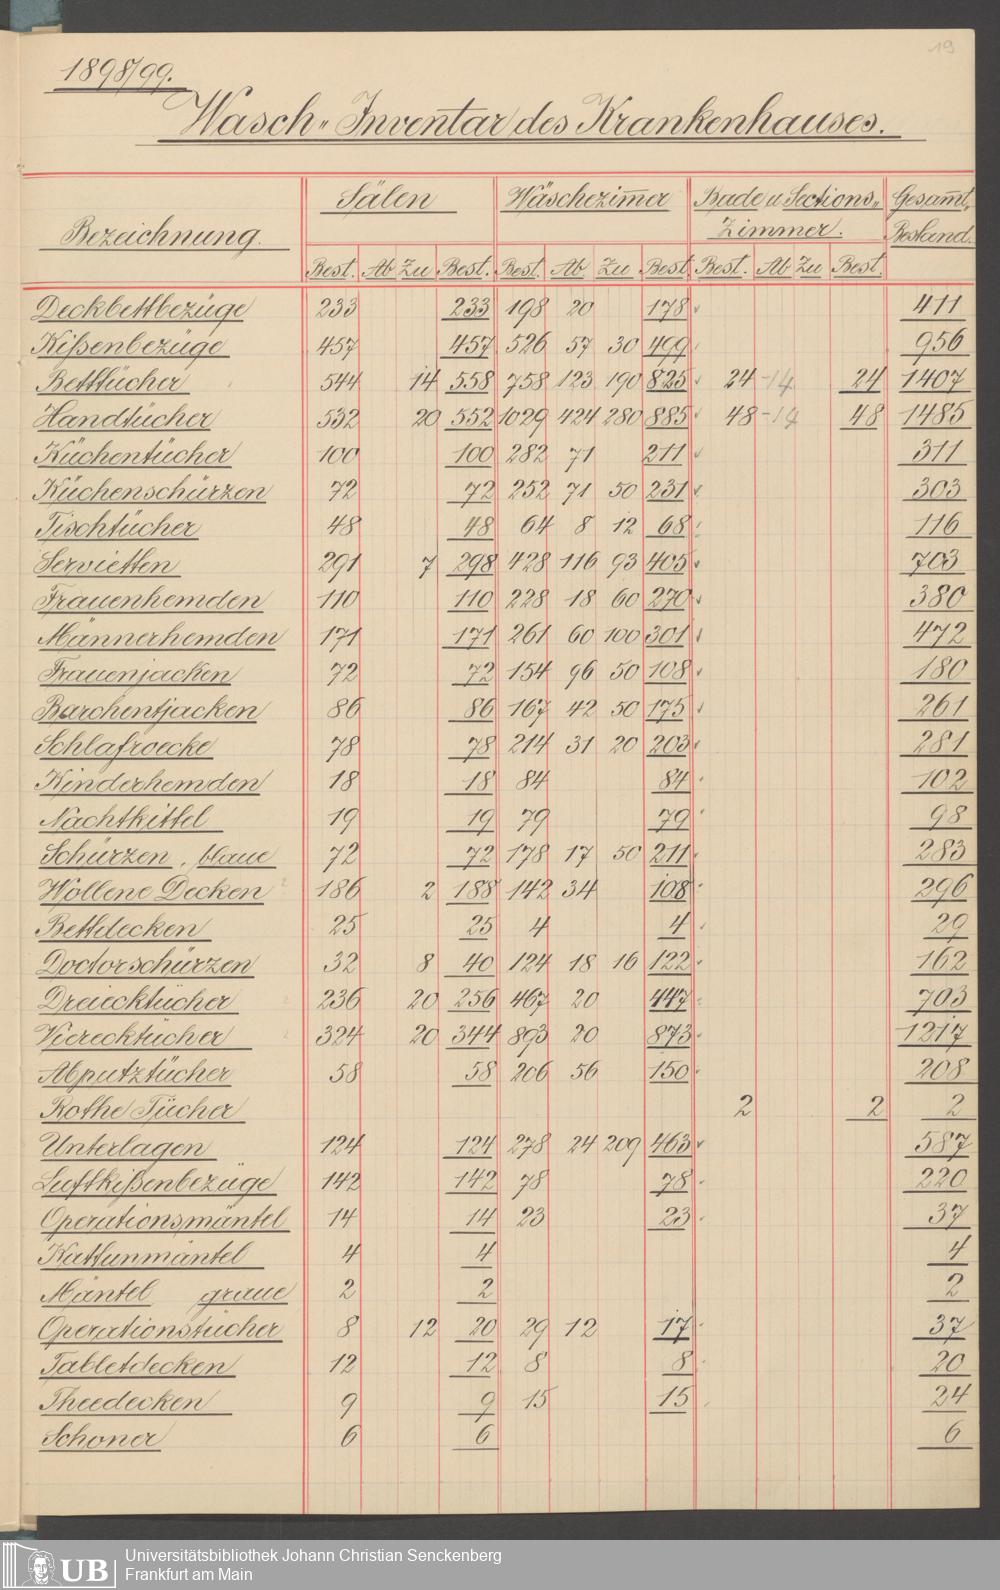 19
1898/99.
Wasch-Inventar des Krankenhauses.
Bezeichnung. Sälen Wäschezim̅er Bade u Sections- Zimmer. Gesam̅t- Bestand.
Best. Ab Zu Best. Best. Ab Zu Best. Best. Ab Zu Best.
Deckbettbezüge 233 233 198 20 178 411
Kißenbezüge 457 457 526 57 30 499 956
Betttücher 544 14 558 758 123 190 825 24 -14 24 1407
Handtücher 532 20 552 1029 424 280 885 48 -14 48 1485
Küchentücher 100 100 282 71 211 311
Küchenschürzen 72 72 252 71 50 231 303
Tischtücher 48 48 64 8 12 68 116
Servietten 291 7 298 428 116 93 405 703
Frauenhemden 110 110 228 18 60 270 380
Männerhemden 171 171 261 60 100 301 472
Frauenjacken 72 72 154 96 50 108 180
Barchentjacken 86 86 167 42 50 175 261
Schlafroecke 78 78 214 31 20 203 281
Kinderhemden 18 18 84 84 102
Nachtkittel 19 19 79 79 98
Schürzen, blaue 72 72 178 17 50 211 283
Wollene Decken 186 2 188 142 34 108 296
Bettdecken 25 25 4 4 29
Doctorschürzen 32 8 40 124 18 16 122 162
Dreiecktücher 236 20 256 467 20 447 703
Vierecktücher 324 20 344 893 20 873 1217
Abputztücher 58 58 206 56 150 208
Rothe Tücher 2 2 2
Unterlagen 124 124 278 24 209 463 587
Luftkißenbezüge 142 142 78 78 220
Operationsmäntel 14 14 23 23 37
Kattunmäntel 4 4 4
Mäntel graue 2 2 2
Operationstücher 8 12 20 29 12 17 37
Tabletdecken 12 12 8 8 20
Theedecken 9 9 15 15 24
Schoner 6 6 6
UB
Universitätsbibliothek Johann Christian Senckenberg
Frankfurt am Main